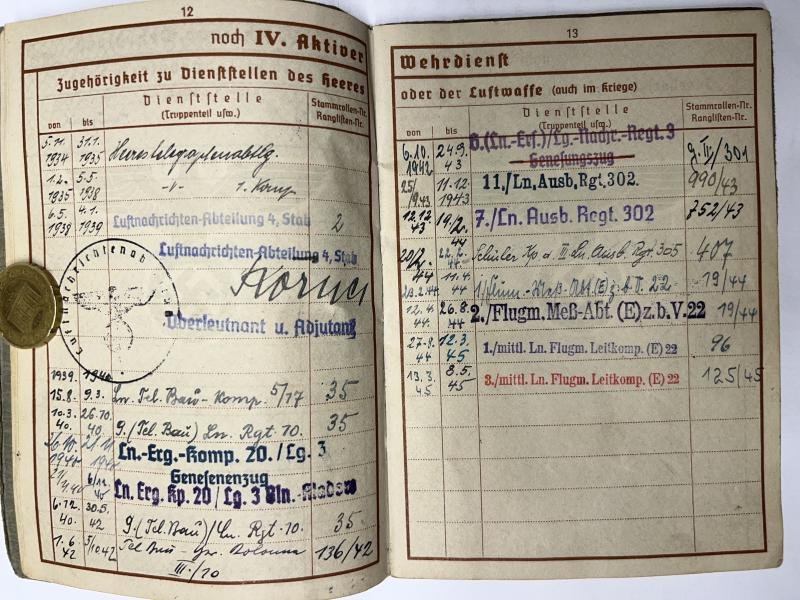 12
noch IV. Aktiver
Zugehörigkeit zu Dienststellen des Heeres
von bis Dienststelle (Truppenteil usw.) Stammrollen-Nr. Ranglisten-Nr.
5.11. 1934 31.1. 1935 Heerestelegraphenabtlg.
1.2. 1935 5.5. 1938 -"- 1. Komp
6.5. 1938 4.1. 1939 Luftnachrichten-Abteilung 4, Stab 2
Luftnachrichten-Abteilung 4, Stab
Luftnachrichtenab
Oberleutnant u. Adjutant
1939. 1940
15.8. 9.3. Ln. Tel. Bau-Komp. 5/17 35
10.3. 40. 26.10. 40 9.(Tel. Bau) Ln. Rgt 10. 35
1940 1940 Ln.-Erg.-Komp. 20./Lg. 3
Genesenenzug
Ln. Erg. Kp. 20/Lg. 3 Bln.-Kladow
6.12. 40. 30.5. 42 9.(Tel. Bau)/Ln. Rgt. 10. 35
1.6. 42 136/42
III./10
13
Wehrdienst
oder der Luftwaffe (auch im Kriege)
von bis Dienststelle (Truppenteil usw.) Stammrollen-Nr. Ranglisten-Nr.
6.10. 1942 24.9. 43 6.(Ln.-Ers.)/Lg.-Nachr.-Regt. 3 301
Genesungszug
25/ 11.12. 1943 11./Ln. Ausb. Rgt. 302. 990/43
12.12. 43 19/2. 44 7./Ln. Ausb. Regt. 302 752/43
20/2. 44 44 Schüler Kp d. III Ln. Ausb. Rgt. 305 407
11.4. 44 (E) z.b.V. 22 19/44
12.4. 44. 26.8. 44 2./Flugm. Meß-Abt. (E) z.b.V. 22 19/44
27.8. 44 12.3. 45 1./mittl. Ln. Flugm. Leitkomp. (E) 22 96
13.3. 45 8.5. 45 3./mittl. Ln. Flugm. Leitkomp. (E) 22 125/45